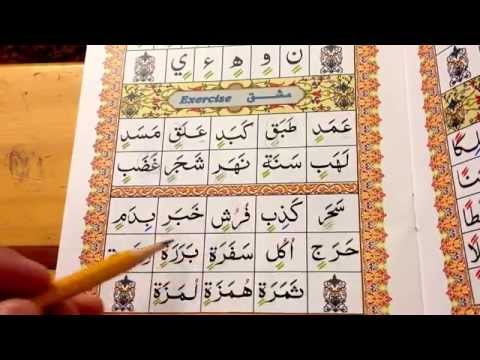 نٍ وٍ هٍ ءٍ يٍ
Exercise مشق
عَمَدٍ طَبَقٍ كَبَدٍ عَلَقٍ مَسَدٍ
لَهَبٍ سَنَةٍ نَهَرٍ شَجَرٍ غَضَبٍ
سَحَرٍ كَذِبٍ فُرُشٍ خَبَرٍ بِدَمٍ
حَرَجٍ اُكُلٍ سَفَرَةٍ بَرَرَةٍ
ثَمَرَةٍ هُمَزَةٍ لُمَزَةٍ